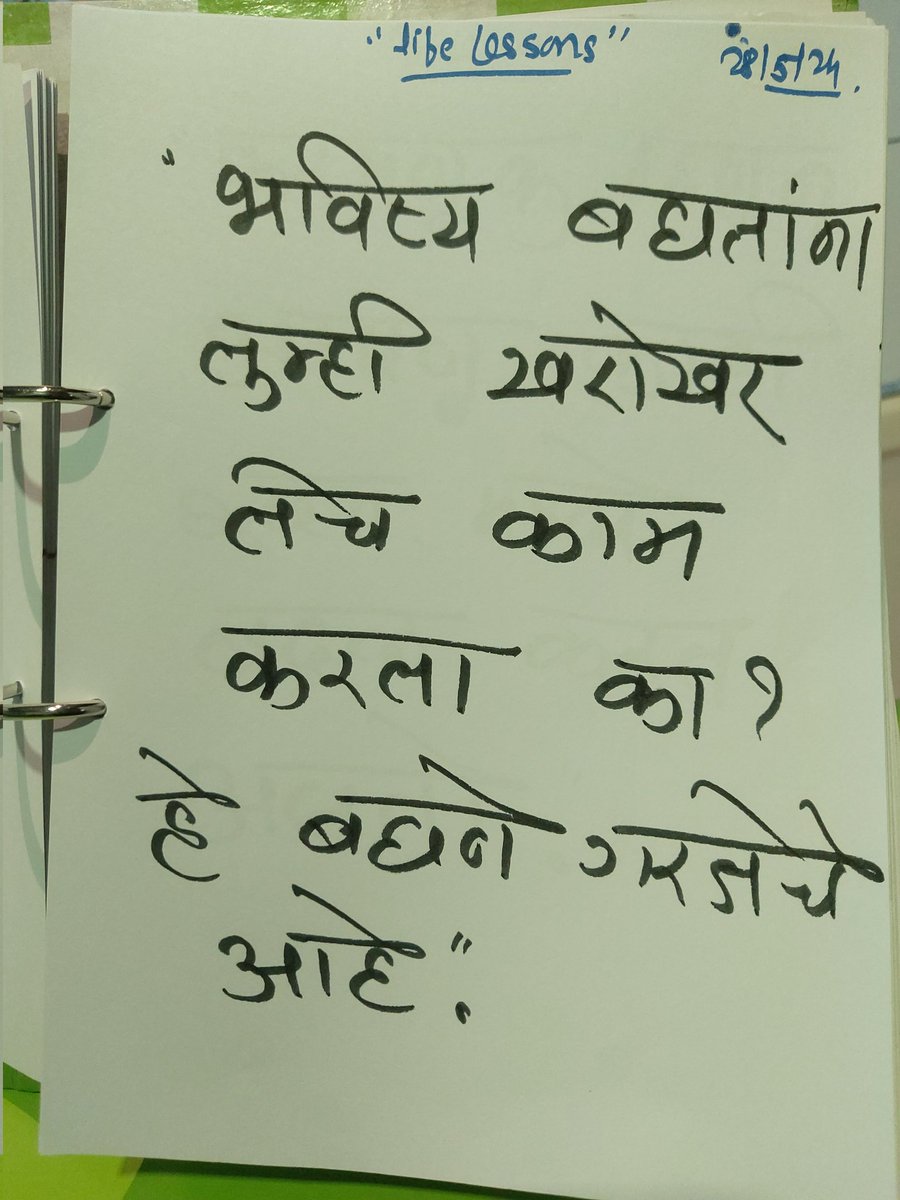 "life lessons" 28/5/24.
"भविष्य बघतांना
तुम्ही खरोखर
तेच काम
करता का?
हे बघणे गरजेचे
आहे".